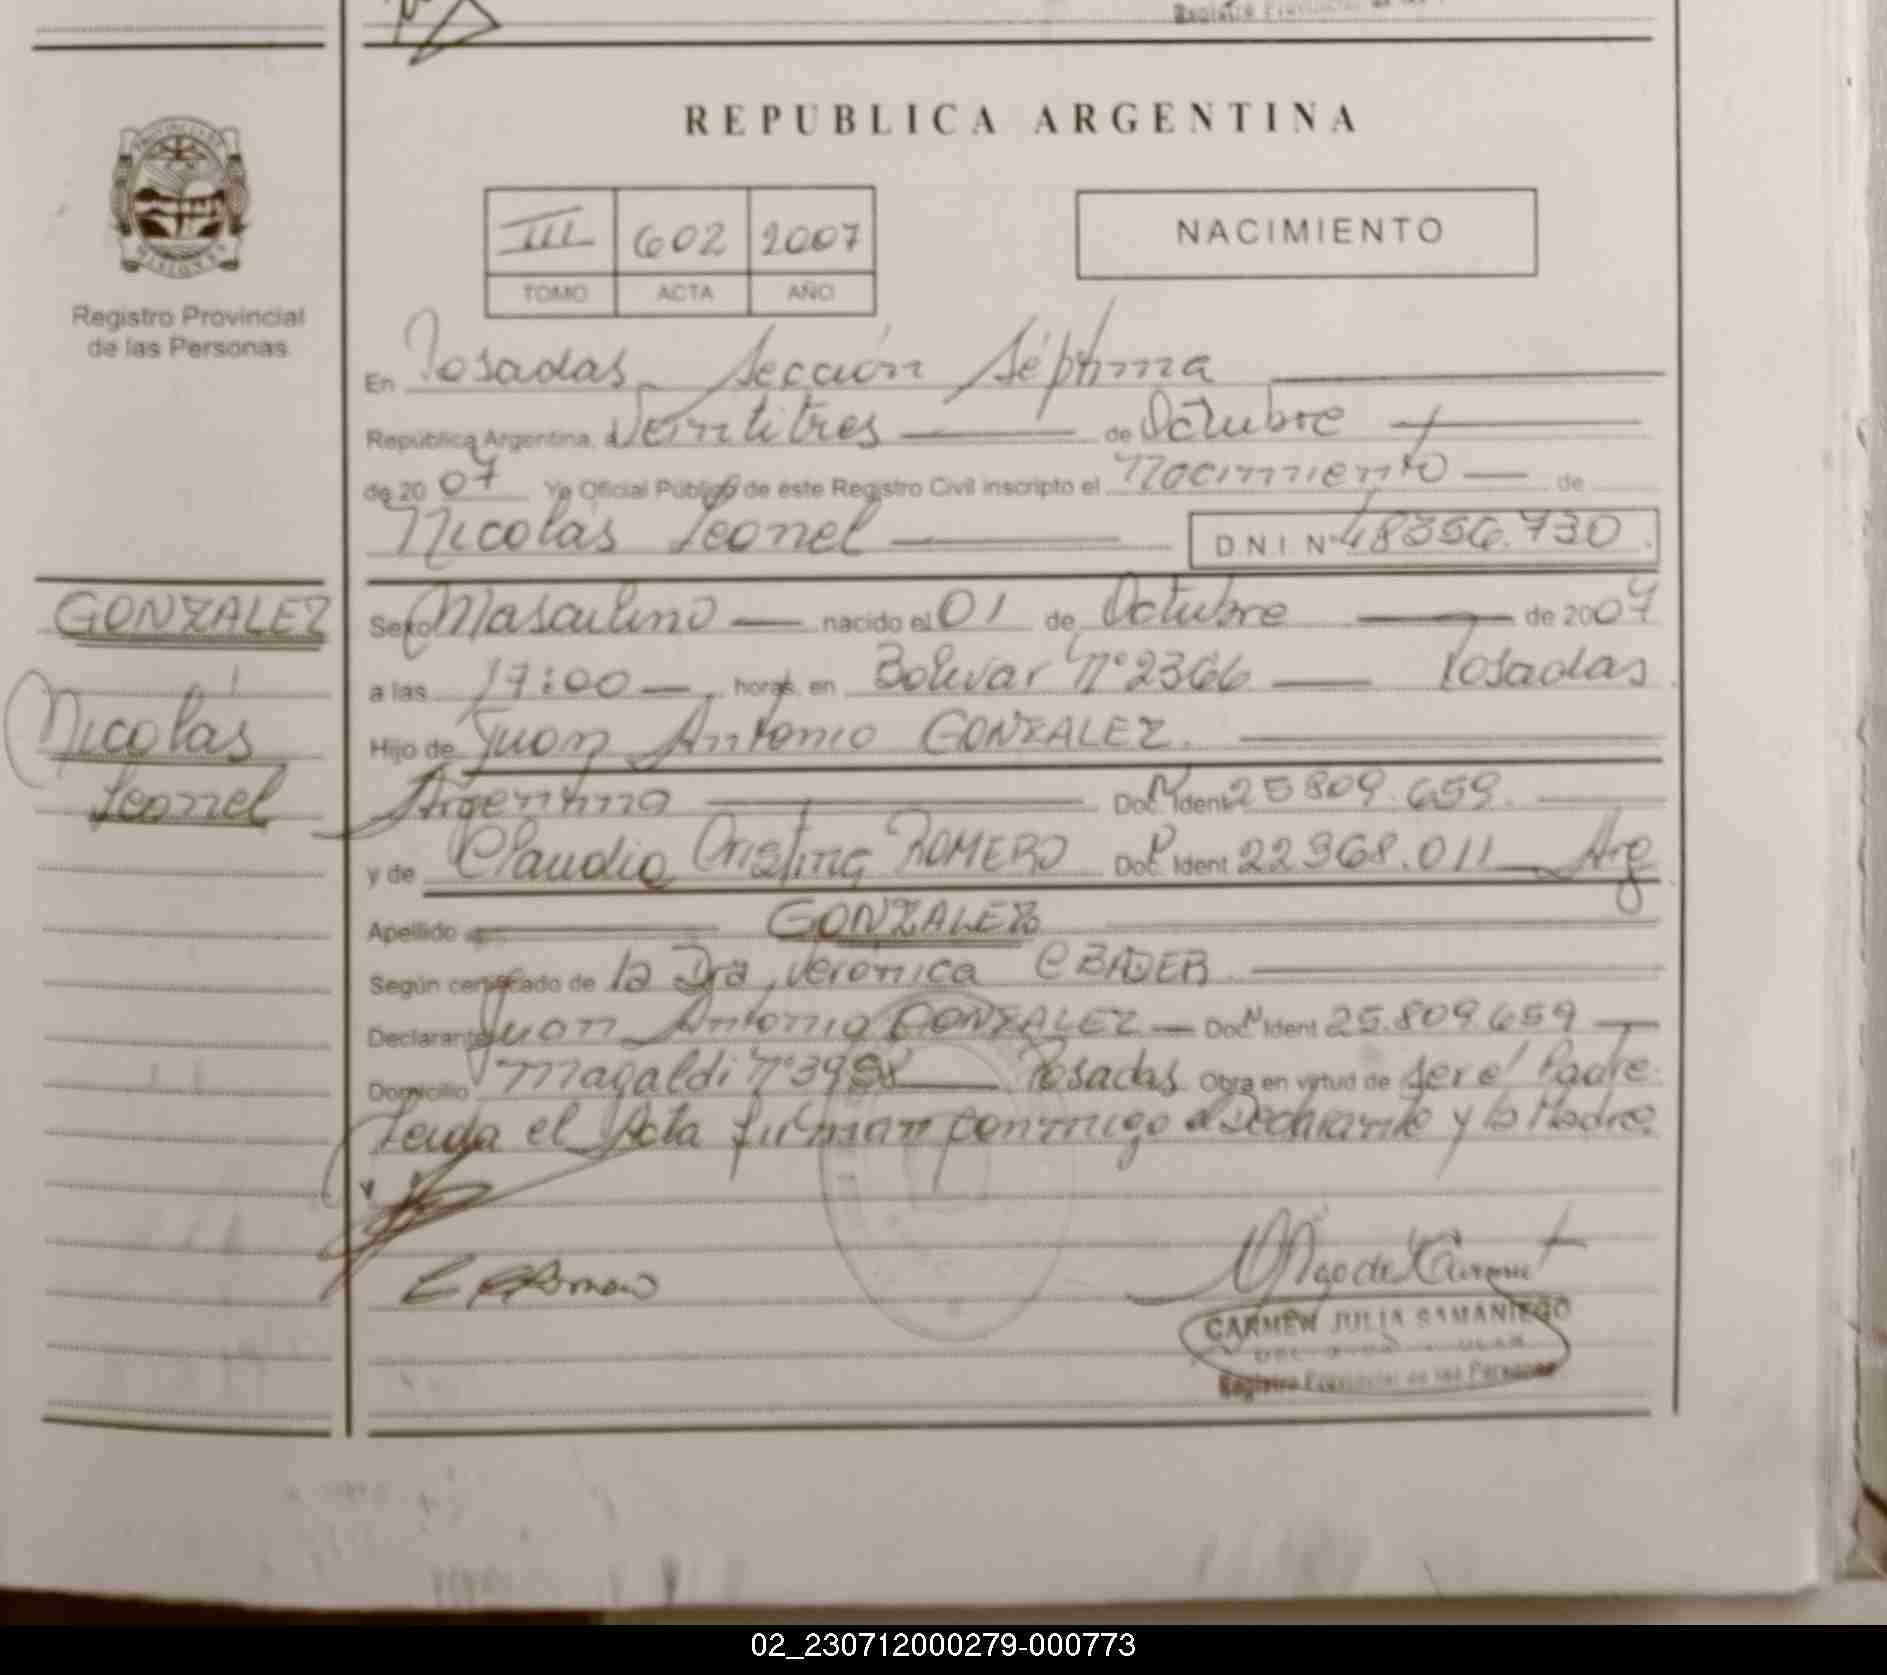 REPUBLICA ARGENTINA
III 602 2007
TOMO ACTA AÑO
NACIMIENTO
Registro Provincial
de las Personas
En Posadas, Sección Séptima
República Argentina, Veintitres de Octubre
de 2007 Yo Oficial Público de este Registro Civil inscripto el Nacimiento de
Nicolás Leonel D.N.I. Nº 48356.730
GONZALEZ
Nicolás
Leonel
Sexo Masculino nacido el 01 de Octubre de 2007
a las 17:00 horas, en Bolivar Nº 2366 Posadas
Hijo de Juan Antonio GONZALEZ.
Argentino Doc. N Ident 25809.659.
y de Claudia Cristina ROMERO Doc. Ident 22.368.011 Arg
Apellido GONZALEZ
Según certificado de la Dra, Veronica C BADER
Declarante Juan Antonio GONZALEZ Doc. N Ident 25.809.659
Domicilio Magaldi Nº Posadas Obra en virtud de ser el Padre.
Leida el Acta firman conmigo el Declarante y la Madre.
CARMEN JULIA SAMANIEGO
Registro Provincial de las Personas
02_230712000279-000773